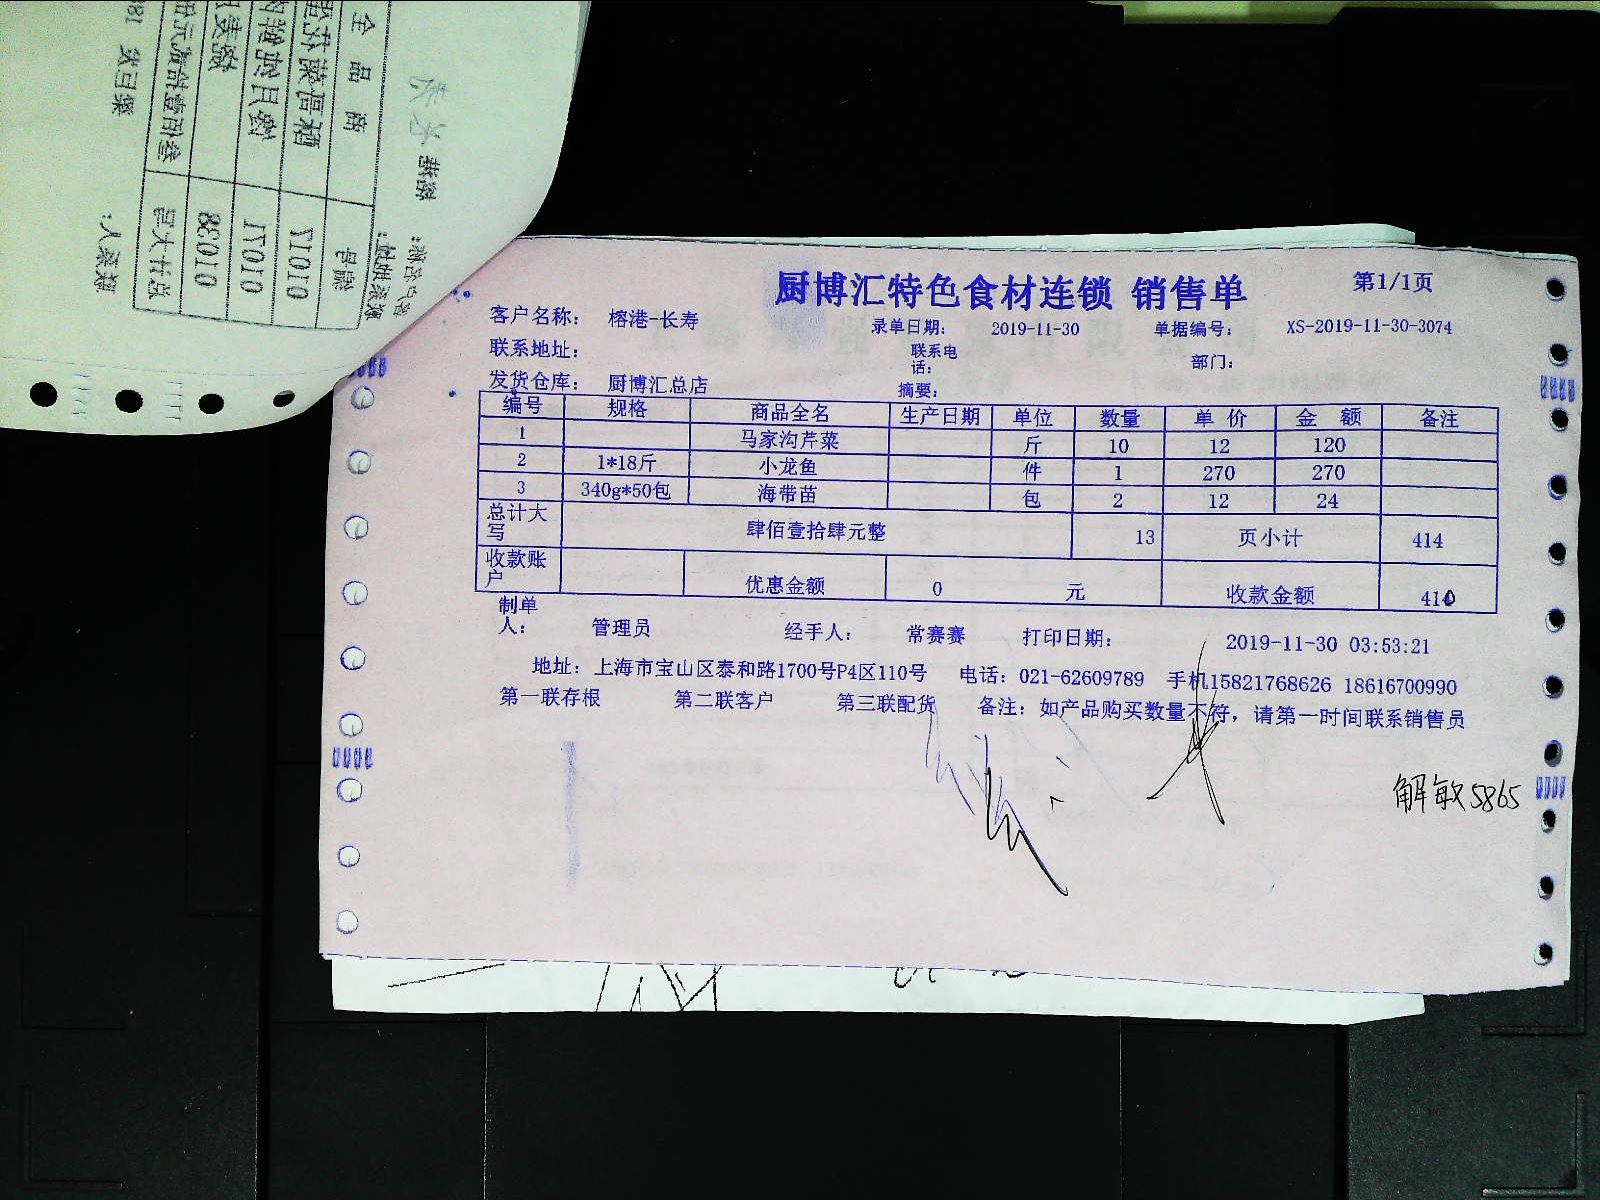 厨博汇特色食材连锁 销售单
第1/1页
客户名称： 榕港-长寿
录单日期： 2019-11-30 单据编号： XS-2019-11-30-3074
联系地址： 联系电话： 部门：
发货仓库： 厨博汇总店 摘要：
编号 规格 商品全名 生产日期 单位 数量 单价 金额 备注
1 马家沟芹菜 斤 10 12 120
2 1*18斤 小龙鱼 件 1 270 270
3 340g*50包 海带苗 包 2 12 24
总计大写 肆佰壹拾肆元整 13 页小计 414
收款账户 优惠金额 0 元 收款金额 410
制单人： 管理员 经手人： 常赛赛 打印日期： 2019-11-30 03:53:21
地址：上海市宝山区泰和路1700号P4区110号 电话：021-62609789 手机15821768626 18616700990
第一联存根 第二联客户 第三联配货 备注：如产品购买数量不符，请第一时间联系销售员
解敏5865